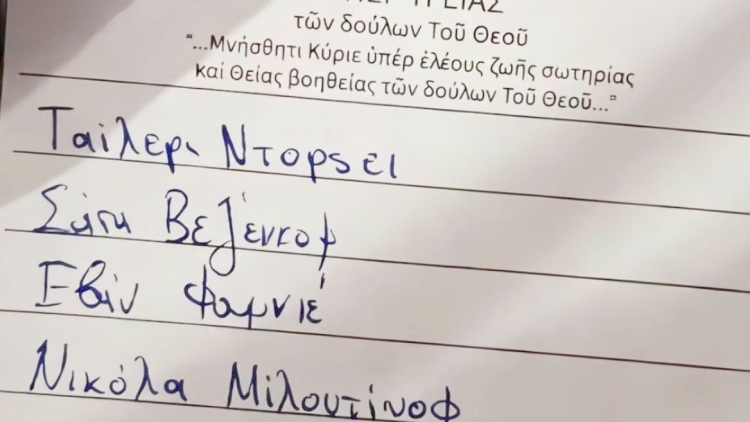 ΥΓΕΙΑΣ
τῶν δούλων Τοῦ Θεοῦ
“...Μνήσθητι Κύριε ὑπέρ ἐλέους ζωῆς σωτηρίας
καί Θείας βοηθείας τῶν δούλων Τοῦ Θεοῦ...”
Ταίλερι Ντορsει
Σάσα Βεζένκοφ
Εβάν Φουρνιέ
Νικόλα Μιλουτίνοφ